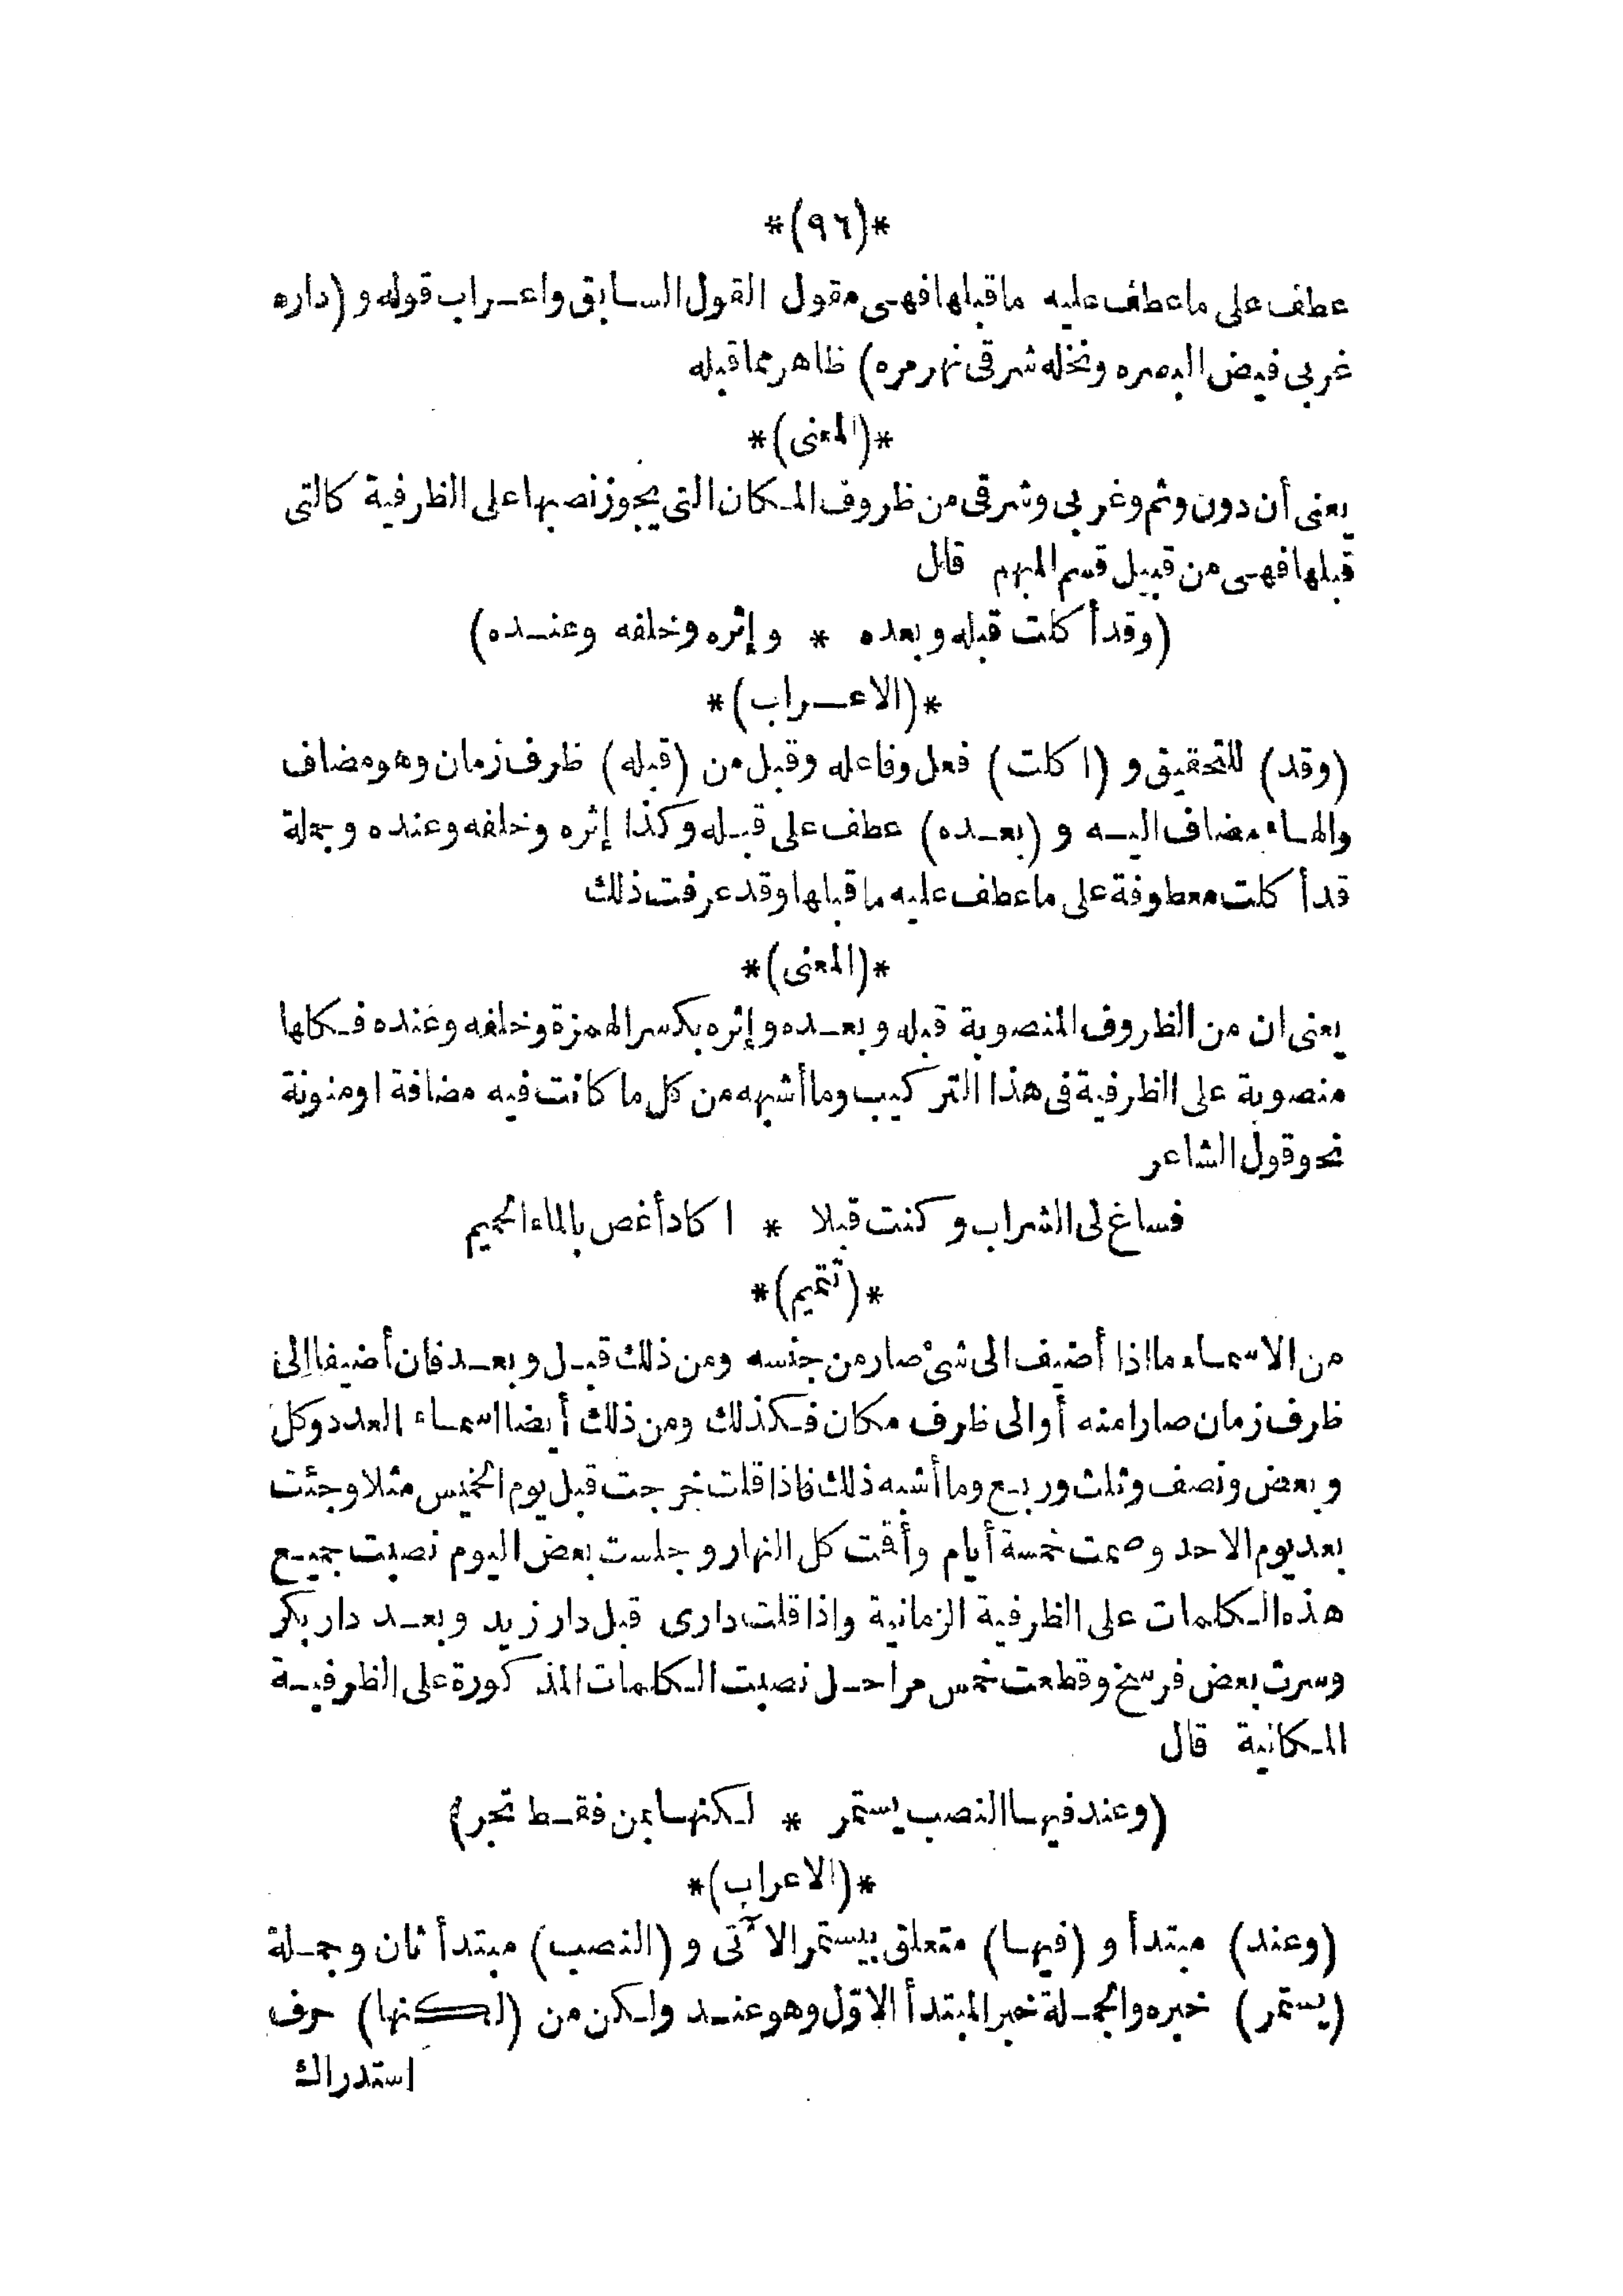 *(٩٦)*
عطف على ماعطف عليه ماقبلها فهى مقول القول السابق واعراب قوله و (داره
غربى فيض البصره ونخله شرقى نهر مره) ظاهر مما قبله
*(المعنى)*
يعنى أن دون وثم وغربى وشرقى من ظروف المكان التى يجوز نصبها على الظرفية كالتى
قبلها فهى من قبيل قسم المبهم قال
(وقد أكلت قبله وبعده * وإثره وخلفه وعنده)
*(الاعراب)*
(وقد) للتحقيق و (اكلت) فعل وفاعله وقبل من (قبله) ظرف زمان وهو مضاف
والهاء مضاف اليه و (بعده) عطف على قبله وكذا إثره وخلفه وعنده وجملة
قد أكلت معطوفة على ماعطف عليه ما قبلها وقد عرفت ذلك
*(المعنى)*
يعنى ان من الظروف المنصوبة قبله وبعده وإثره بكسر الهمزة وخلفه وعنده فكلها
منصوبة على الظرفية فى هذا التركيب وما أشبهه من كل ما كانت فيه مضافة او منونة
نحو قول الشاعر
فساغ لى الشراب وكنت قبلا * اكاد أغص بالماء الحميم
*(تتميم)*
من الاسماء ما اذا أضيف الى شئ صار من جنسه ومن ذلك قبل وبعد فان أضيفا إلى
ظرف زمان صارا منه أو الى ظرف مكان فكذلك ومن ذلك أيضا اسماء العدد وكل
وبعض ونصف وثلث وربع وما أشبه ذلك فاذا قلت خرجت قبل يوم الخميس مثلا وجئت
بعد يوم الاحد وصمت خمسة أيام وأقت كل النهار وجلست بعض اليوم نصبت جميع
هذه الكلمات على الظرفية الزمانية واذا قلت دارى قبل دار زيد وبعد دار بكر
وسرت بعض فرسخ وقطعت خمس مراحل نصبت الكلمات المذكورة على الظرفية
المكانية قال
(وعند فيها النصب يستمر * لكنها بمن فقط تجر)
*(الاعراب)*
(وعند) مبتدأ و (فيها) متعلق بيستمر الآتى و (النصب) مبتدأ ثان وجملة
(يستمر) خبره والجملة خبر المبتدأ الاوّل وهو عند ولكن من (لكنها) حرف
استدراك